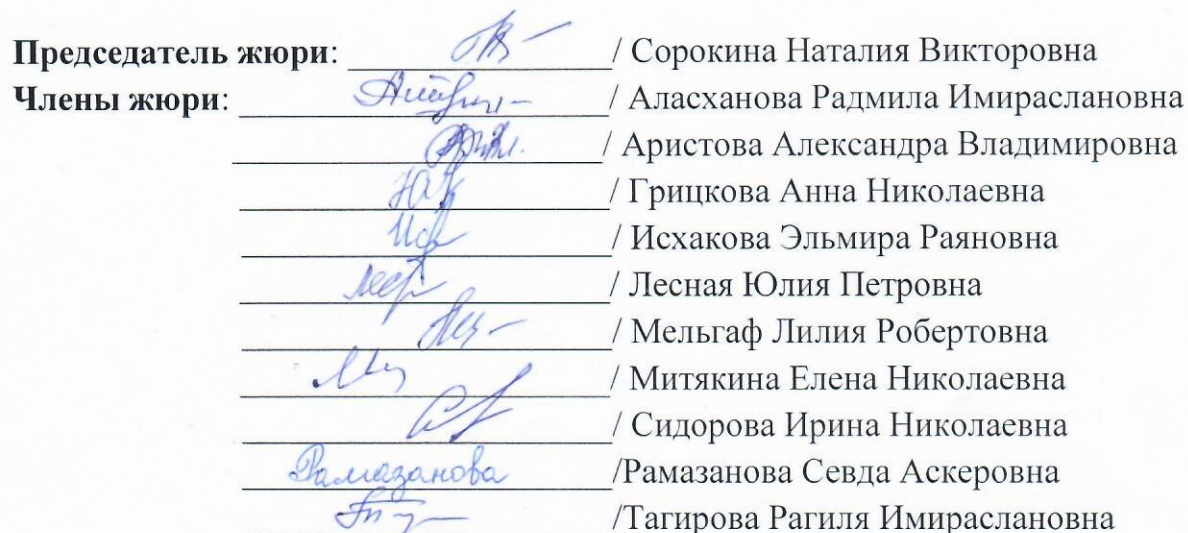 Председатель жюри: / Сорокина Наталия Викторовна
Члены жюри: / Аласханова Радмила Имираслановна
/ Аристова Александра Владимировна
/ Грицкова Анна Николаевна
/ Исхакова Эльмира Раяновна
/ Лесная Юлия Петровна
/ Мельгаф Лилия Робертовна
/ Митякина Елена Николаевна
/ Сидорова Ирина Николаевна
Рамазанова /Рамазанова Севда Аскеровна
/Тагирова Рагиля Имираслановна